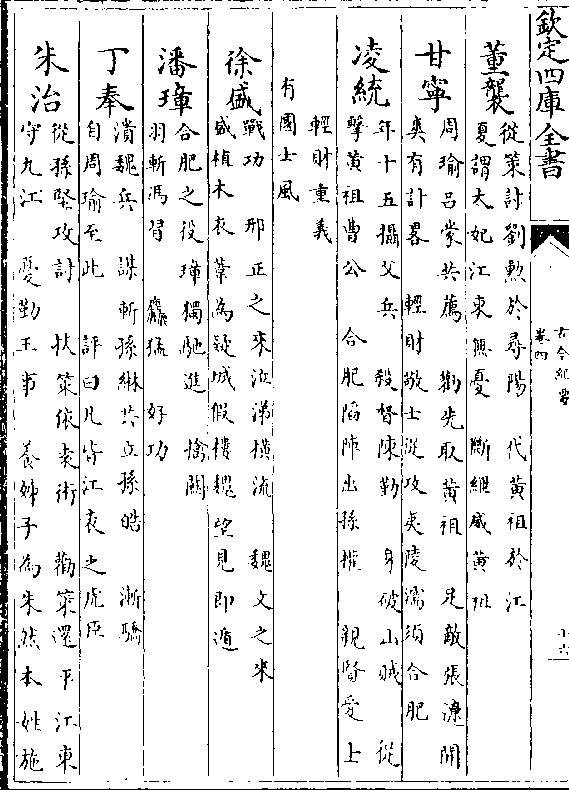 欽定四庫全書
古今紀要
卷四
十六
董襲
從策計劉勳於尋陽　代黃祖於江
夏謂太妃江東無憂　斷紲戚黃祖
甘寧
周瑜呂蒙共薦　勸先取黃祖　足敵張遼開
爽有計畧　輕財敬士從攻夷陵濡須合肥
凌統
年十五攝父兵　殺督陳勤　身破山賊　從
擊黃祖曹公　合肥陷陣出孫權　親賢愛士
輕財重義
有國士風
徐盛
戰功　邢正之來泣涕橫流　魏文之來
盛植木衣葦為疑城假樓魏望見即遁
潘璋
合肥之役璋獨馳進　擒關
羽斬馮習　麤猛　好功
丁奉
潰魏兵　謀斬孫綝共立孫皓　漸驕
自周瑜至此　評曰凡皆江表之虎臣
朱治
從孫堅攻討　扶策依袁術　勸策還平江東
守九江　憂勤王事　養姊子為朱然本姓施